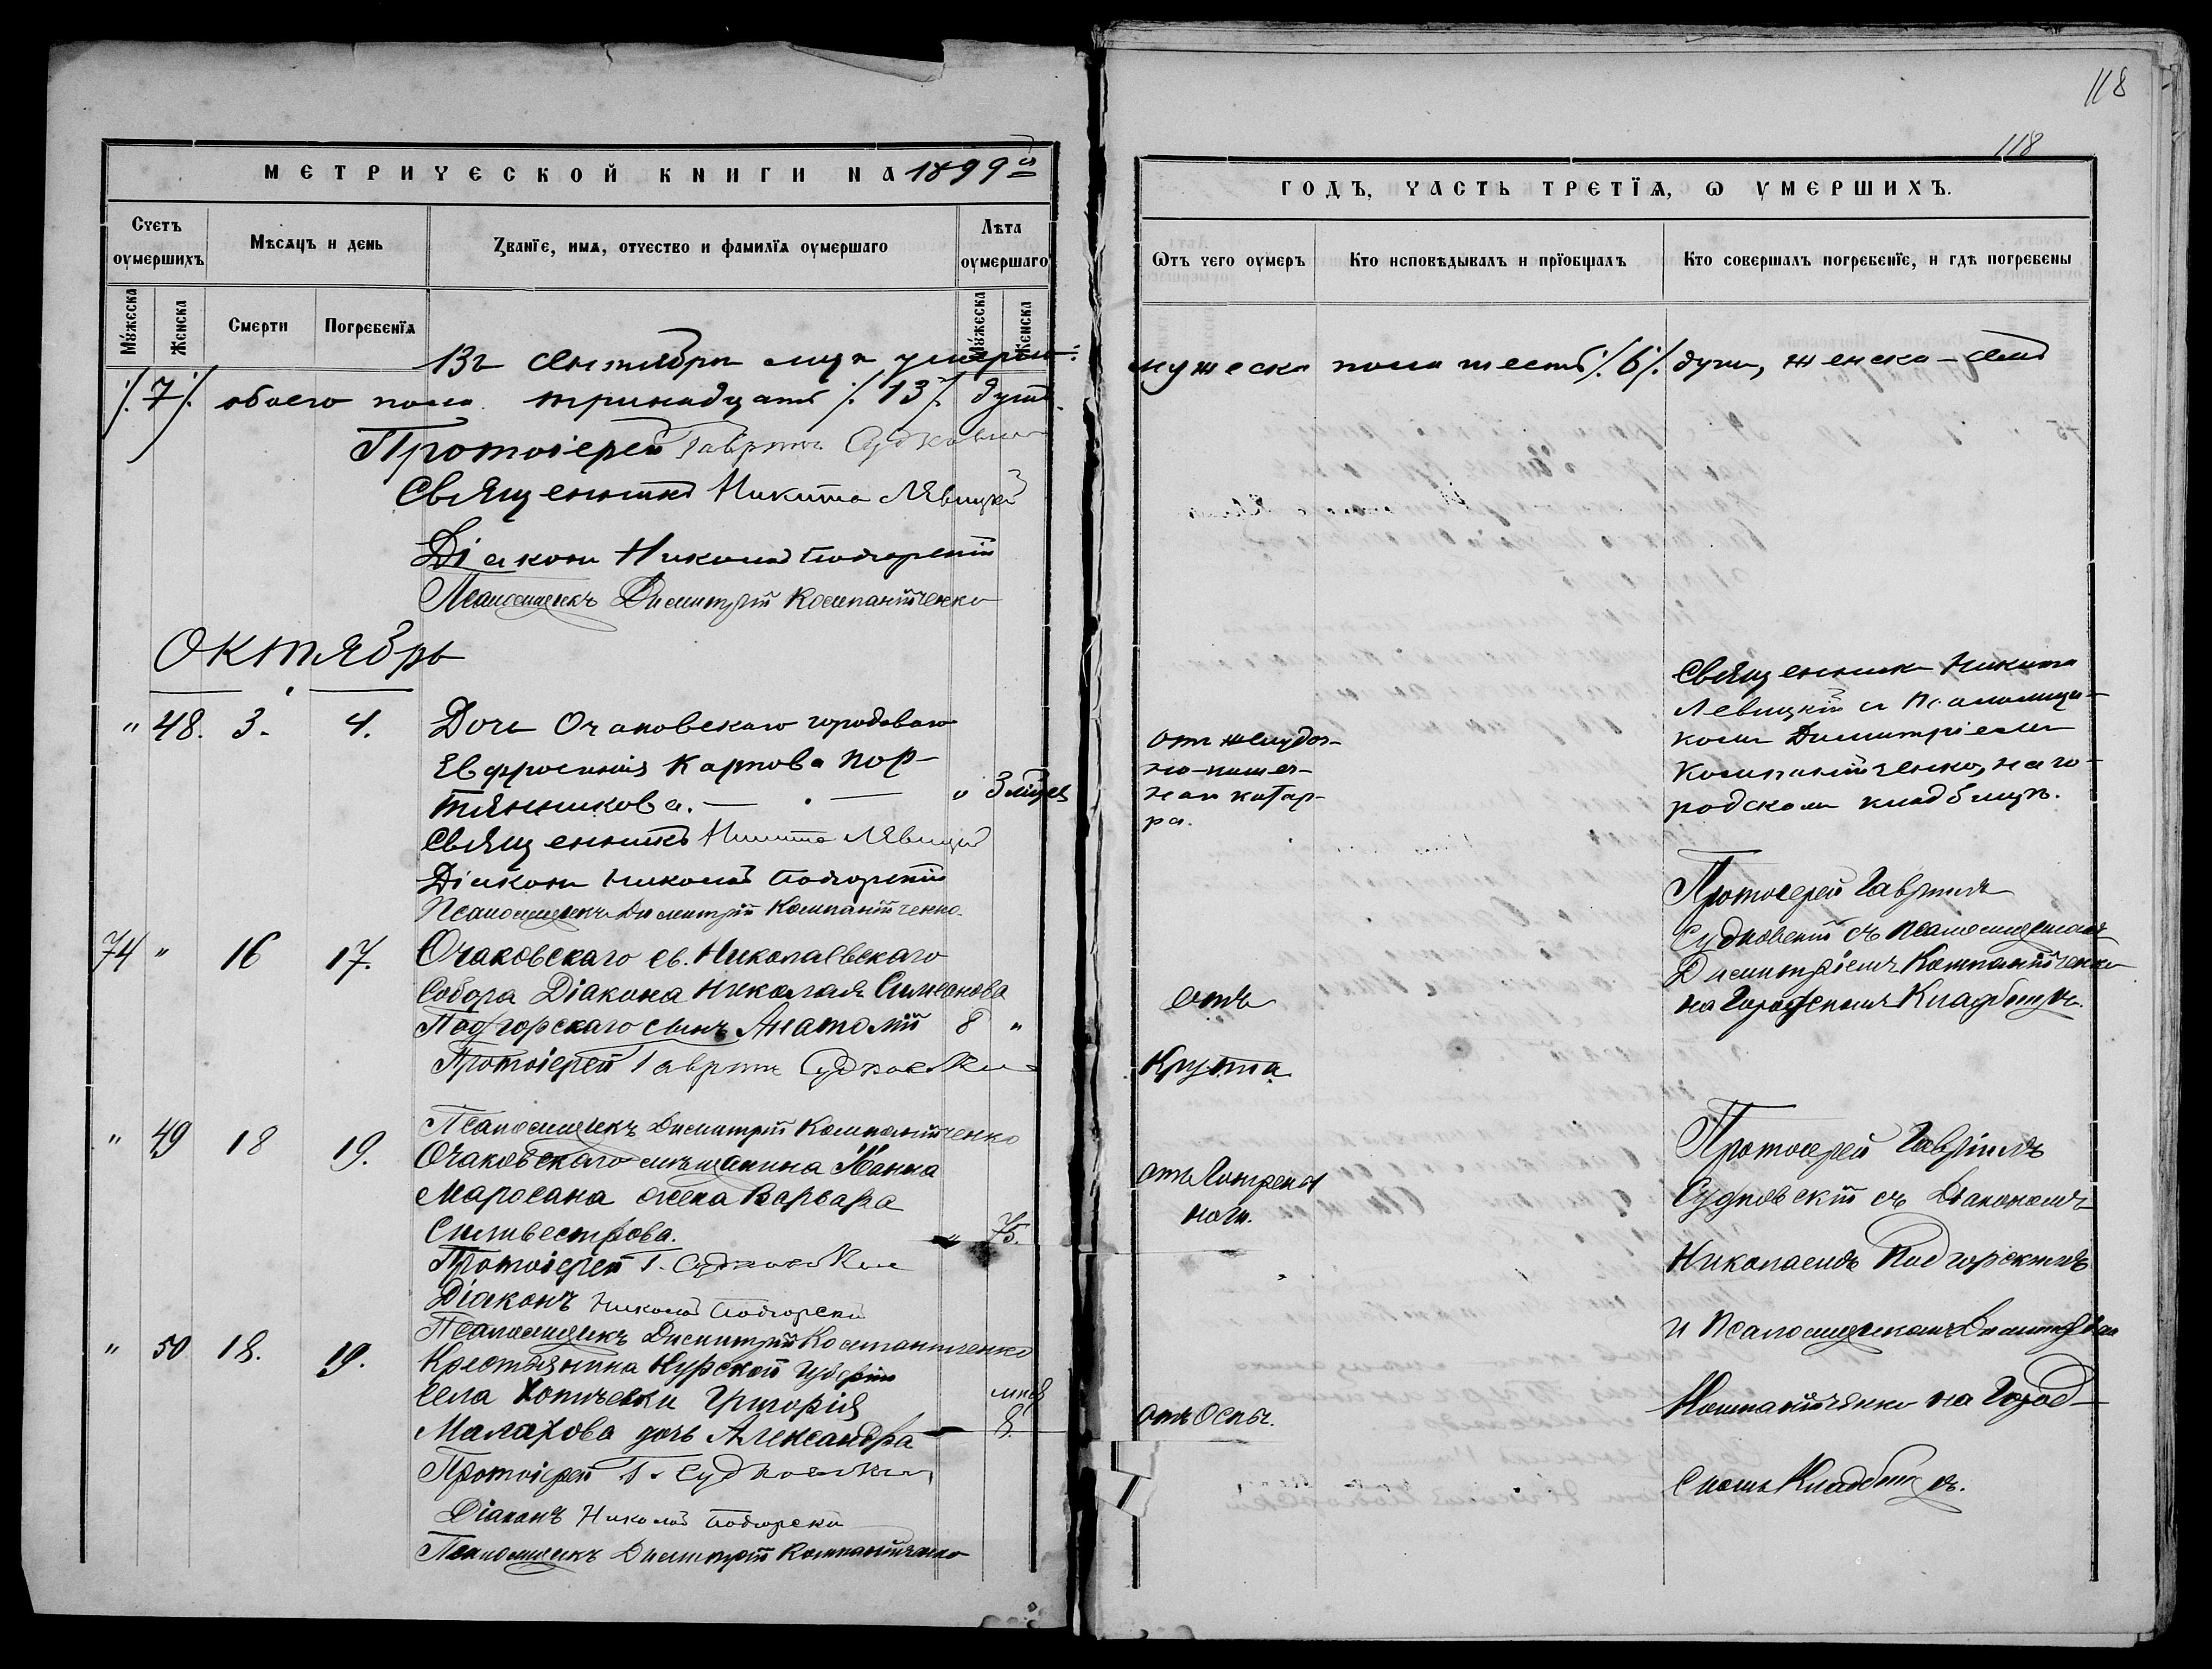 118
118
МЕТРИЧЕСКОЙ КНИГИ НА 1899й
ГОДЪ, ЧАСТЬ ТРЕТЇѦ, Ѡ УМЕРШИХЪ.
Счетъ оумершихъ
Мѣсѧцъ и день
Званїе, имѧ, отчество и фамилїѧ оумершаго
Лѣта оумершаго
Ѡтъ чего оумеръ
Кто исповѣдывалъ и прїобщалъ
Кто совершалъ погребенїе, и гдѣ погребены
Мужеска
Женска
Смерти
Погребенїѧ
Мужеска
Женска
Въ Сентябрѣ умерло: мужеска пола шесть /6/ душъ, женска – семь
/7/ обоего пола тринадцать /13/ душъ.
Протоіерей Гавріилъ Судковскій
Священникъ Никита Левицкій
Діаконъ Николай Подгорскій
Псаломщикъ Димитрій Компанійченко
Октябрь
" 48. 3. 4. Дочь Очаковскаго городоваго
Евфросинія Карпова Пор-
тянникова. " 3 мѣсец
Священникъ Никита Левицкій
Діаконъ Николай Подгорскій
Псаломщикъ Димитрій Компанійченко.
отъ желудоч-
но-кишеч-
наго катар-
ра.
Священникъ Никита
Левицкій съ Псаломщи-
комъ Димитріемъ
Компанійченко, на го-
родскомъ кладбищѣ.
74 " 16 17. Очаковскаго св. Николаевскаго
Собора Діакона Николая Симеонова
Подгорскаго сынъ Анатолій 8 "
Протоіерей Гавріилъ Судковскій
Псаломщикъ Димитрій Компанійченко
отъ
Крупа.
Протоіерей Гавріилъ
Судковскій съ псаломщикомъ
Димитріемъ Компанійченко
на Городскомъ Кладбищѣ.
" 49 18 19.
Очаковскаго мѣщанина Ивана
Маросана жена Варвара
Сильвестрова. " 75.
Протоіерей Г. Судковскій
Діаконъ Николай Подгорскій
Псаломщикъ Димитрій Компанійченко
отъ Гангрены
ноги.
" 50 18. 19.
Крестьянина Курской губерніи
села Григорія
Малахова дочь Александра мѣс 8.
Протоіерей Г. Судковскій
Діаконъ Николай Подгорскій
Псаломщикъ Димитрій Компанійченко
отъ Оспы.
Протоіерей Гавріилъ
Судковскій съ Діакономъ
Николаемъ Подгорскимъ
и Псаломщикомъ Димитріем
Компанійченко на Город-
скомъ Кладбищѣ.